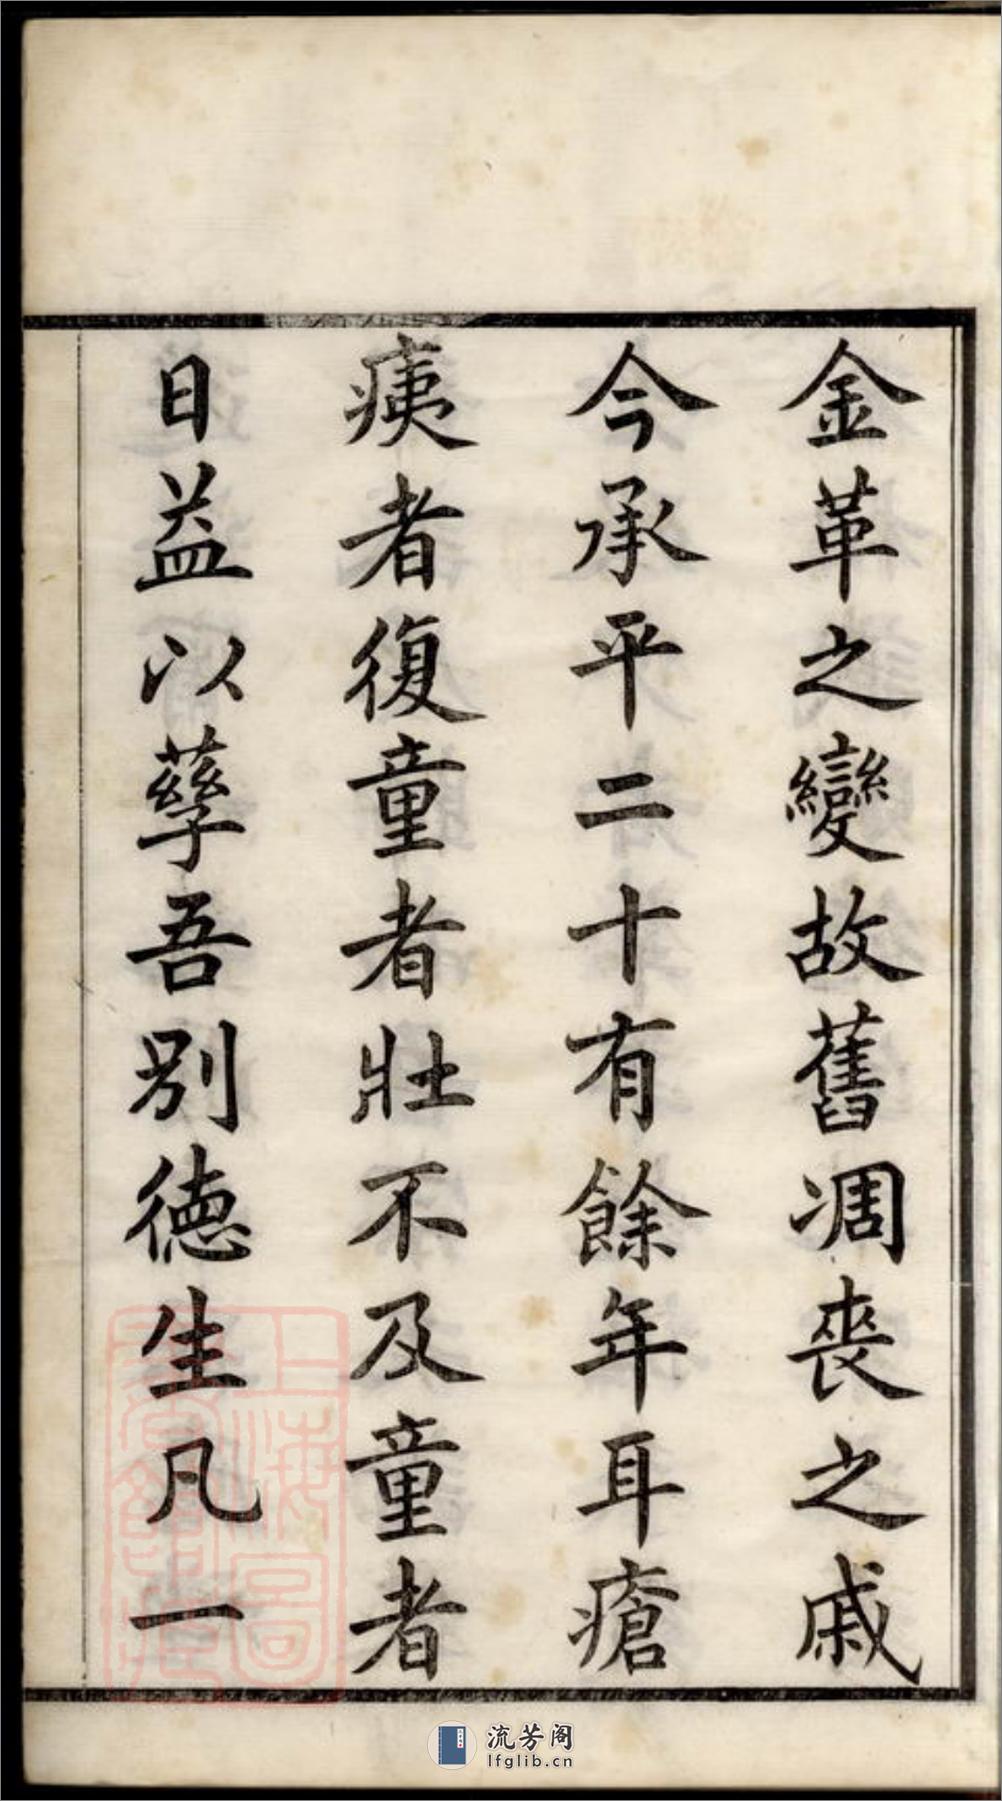 金革之變故舊凋喪之戚
今承平二十有餘年耳瘡
痍者復童者壯不及童者
日益以孳吾別德生凡一
上海圖書館藏
流芳阁
lfglib.cn